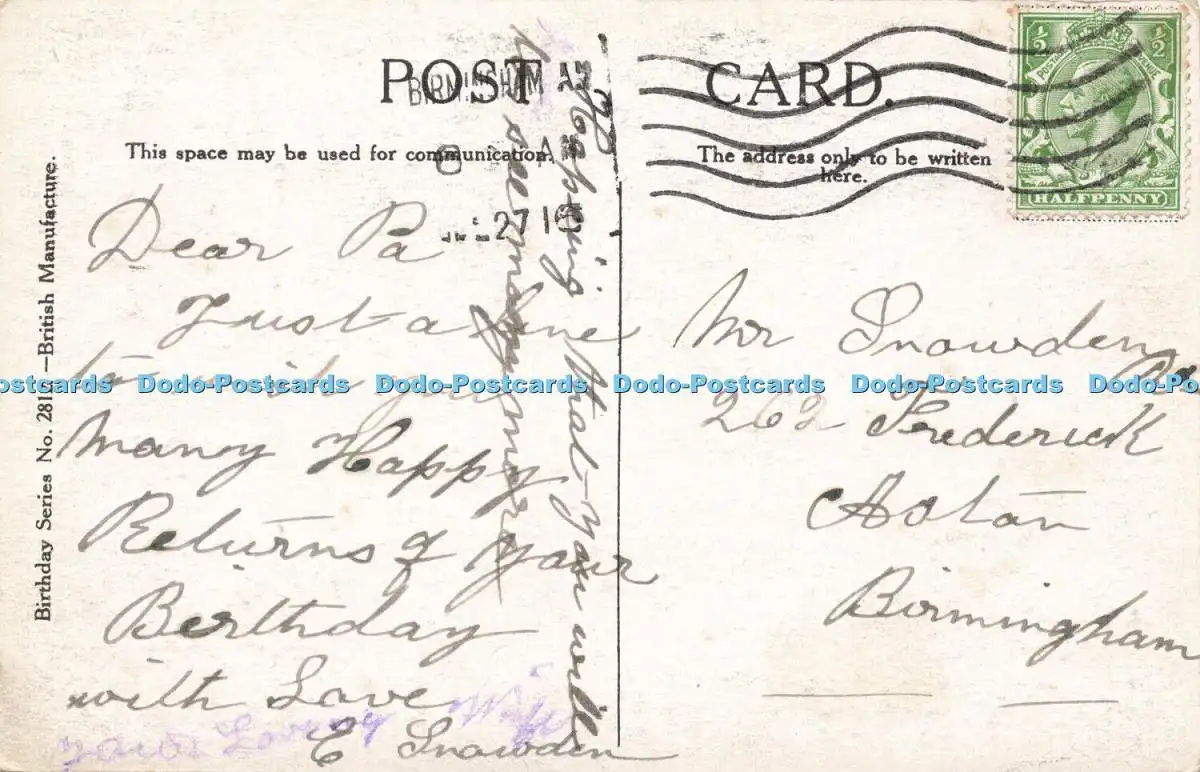 POST CARD.
BIRMINGHAM
27 16
½ ½
HALFPENNY
This space may be used for communication.
The address only to be written
here.
Birthday Series No. 281 —British Manufacture.
Dear Pa
Just a line
to wish you
Many Happy
Returns of your
Berthday
with Love
E Snowden
your Loving Wife
hopping that you will
see many more
Mr Snowden
262 Frederick Rd
Aston
Birmingham
Dodo-Postcards Dodo-Postcards Dodo-Postcards Dodo-Postcards Dodo-Postcards